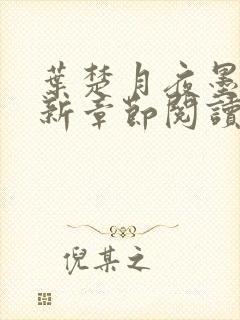 葉楚月夜墨
新章節閱讀
倪某之